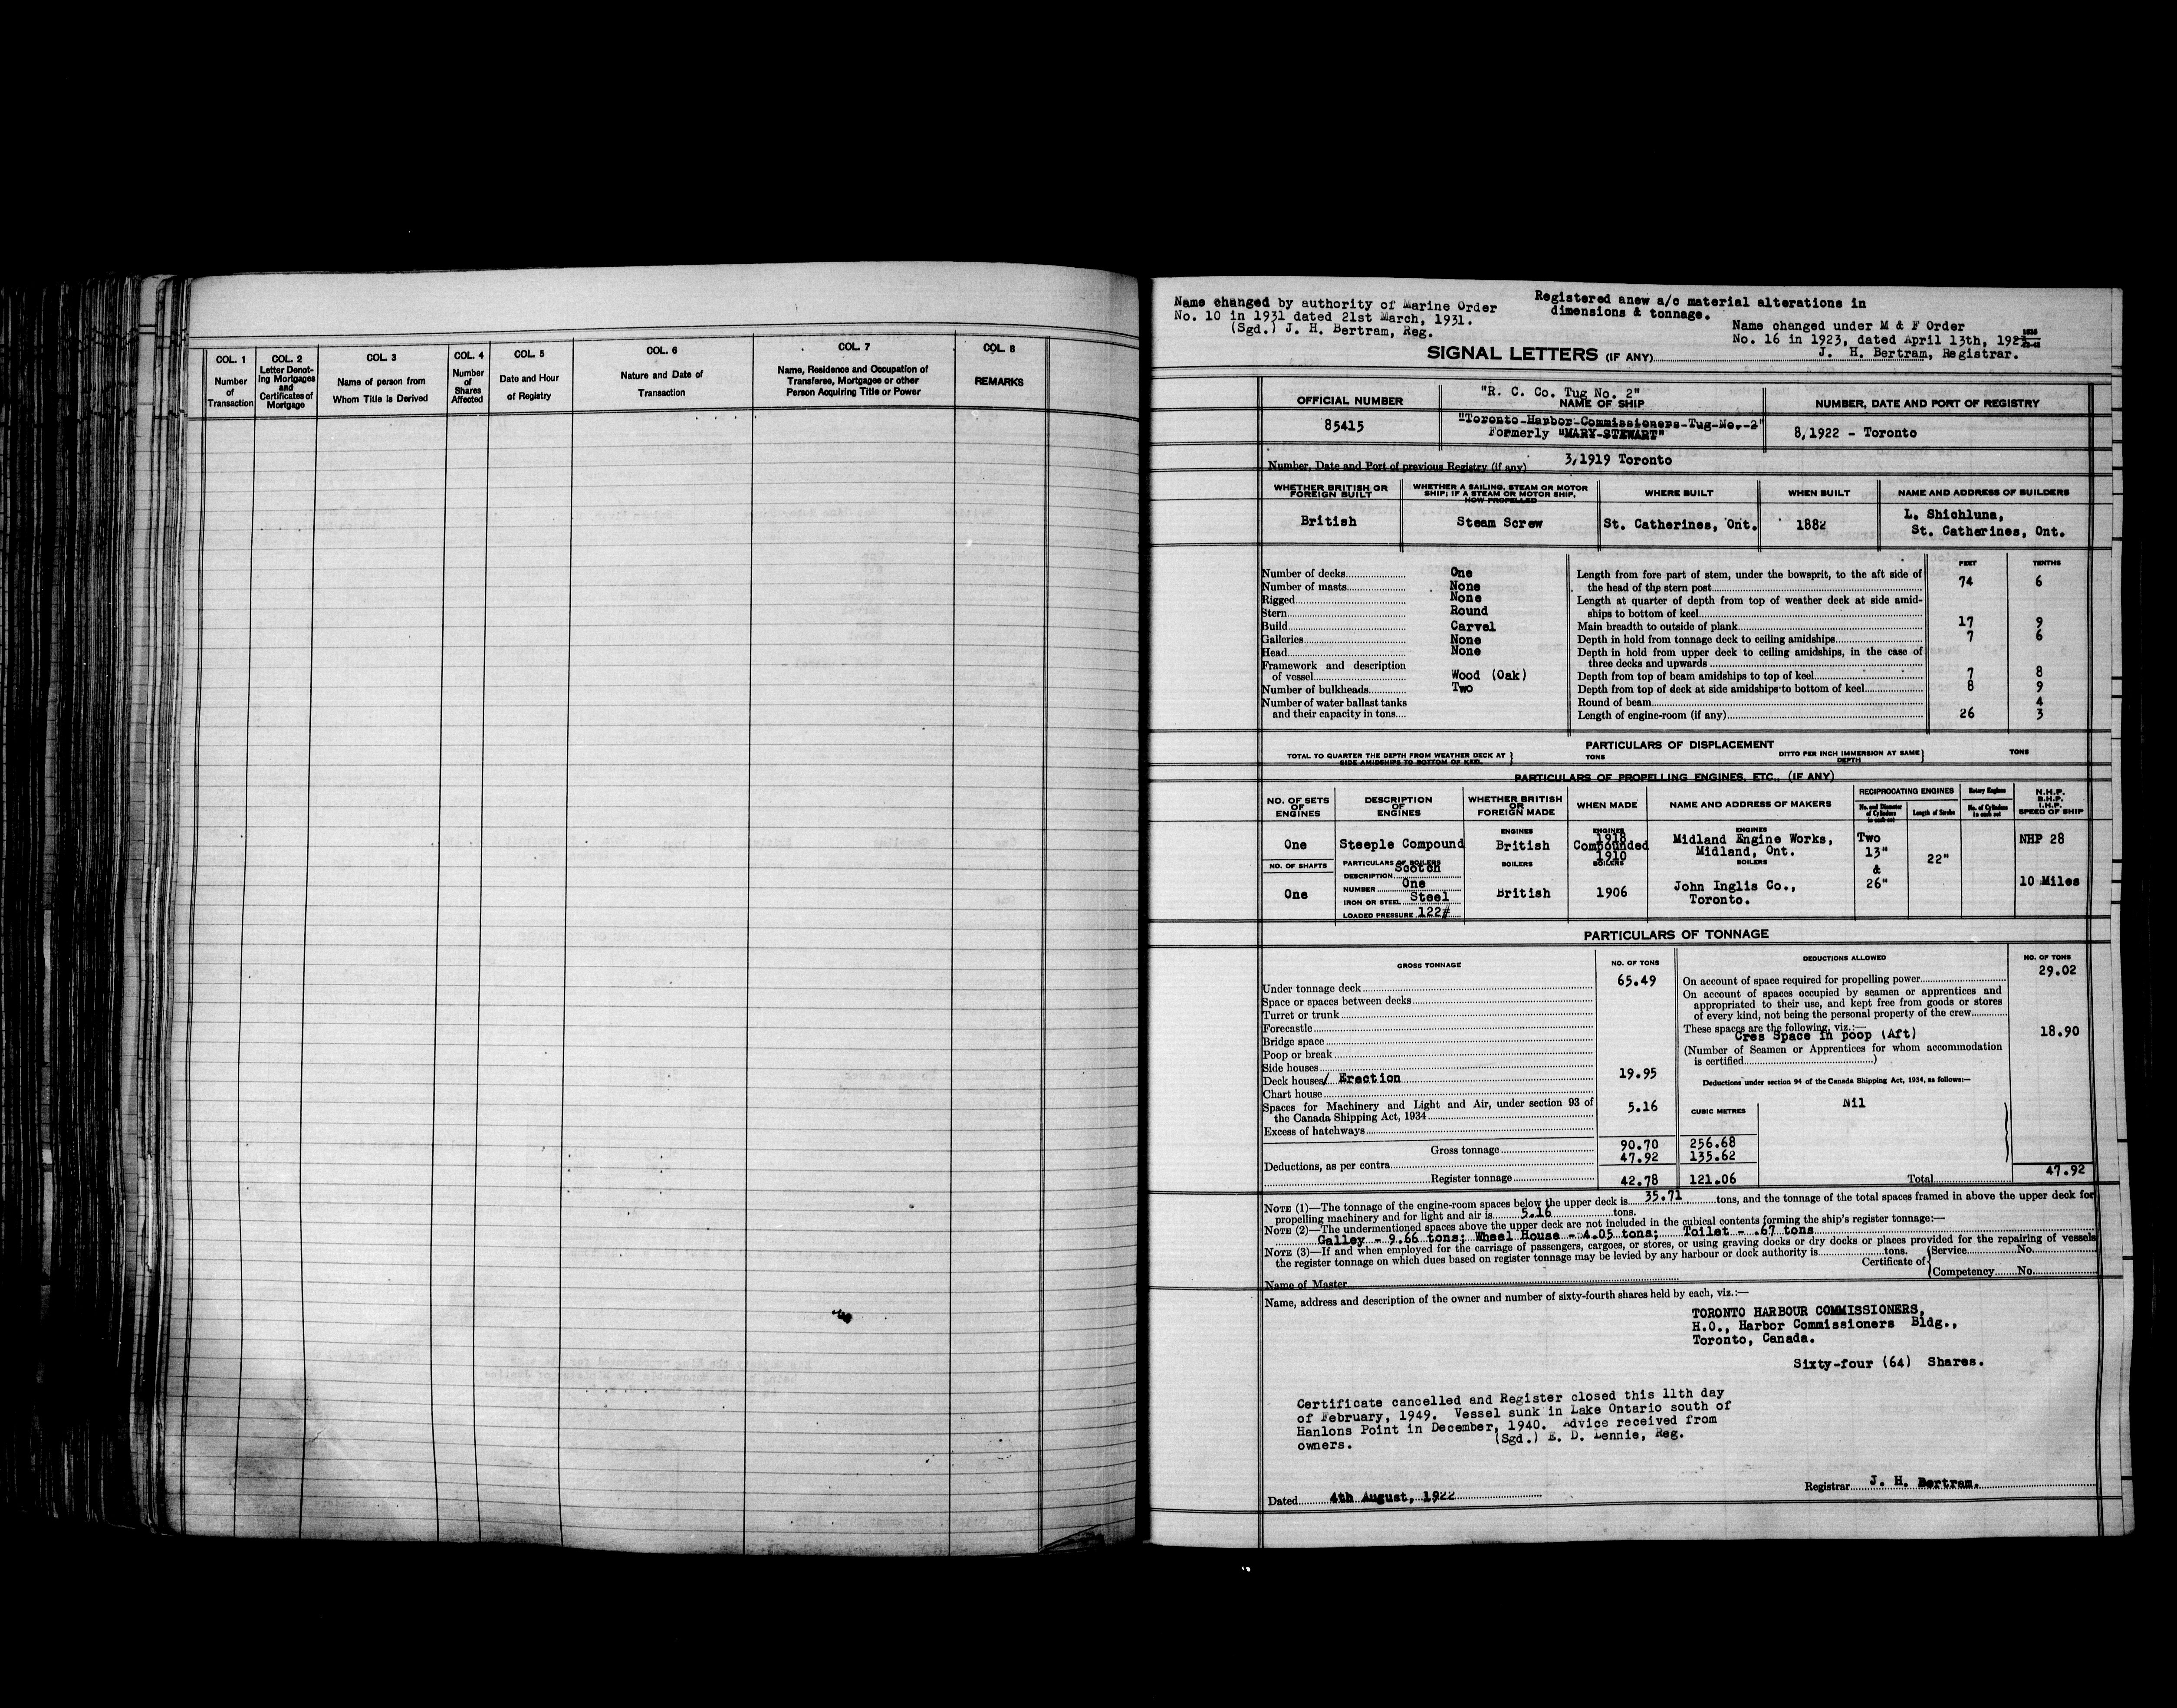 COL. 1
Number
of
Transaction
COL. 2
Letter Denot-
ing Mortgages
and
Certificates of
Mortgage
COL. 3
Name of person from
Whom Title is Derived
COL. 4
Number
of
Shares
Affected
COL. 5
Date and Hour
of Registry
COL. 6
Nature and Date of
Transaction
COL. 7
Name, Residence and Occupation of
Transferee, Mortgagee or other
Person Acquiring Title or Power
COL. 8
REMARKS
Name changed by authority of Marine Order
No. 10 in 1931 dated 21st March, 1931.
(Sgd.) J. H. Bertram, Reg.
Registered anew a/c material alterations in
dimensions & tonnage.
Name changed under M & F Order
No. 16 in 1923, dated April 13th, 192
J. H. Bertram, Registrar.
SIGNAL LETTERS (IF ANY)
OFFICIAL NUMBER
85415
"R. C. Co. Tug No. 2"
NAME OF SHIP
"Toronto-Harbor-Commissioners-Tug-No.-2"
Formerly "MARY-STEWART"
NUMBER, DATE AND PORT OF REGISTRY
8/1922 - Toronto
Number, Date and Port of previous Registry (if any) 3/1919 Toronto
WHETHER BRITISH OR
FOREIGN BUILT
British
WHETHER A SAILING, STEAM OR MOTOR
SHIP; IF A STEAM OR MOTOR SHIP,
HOW PROPELLED
Steam Screw
WHERE BUILT
St. Catherines, Ont.
WHEN BUILT
1882
NAME AND ADDRESS OF BUILDERS
L. Shichluna,
St. Catherines, Ont.
Number of decks One
Number of masts None
Rigged None
Stern Round
Build Carvel
Galleries None
Head None
Framework and description
of vessel Wood (Oak)
Number of bulkheads Two
Number of water ballast tanks
and their capacity in tons
FEET TENTHS
Length from fore part of stem, under the bowsprit, to the aft side of
the head of the stern post 74 6
Length at quarter of depth from top of weather deck at side amid-
ships to bottom of keel
Main breadth to outside of plank 17 9
Depth in hold from tonnage deck to ceiling amidships 7 6
Depth in hold from upper deck to ceiling amidships, in the case of
three decks and upwards
Depth from top of beam amidships to top of keel 7 8
Depth from top of deck at side amidships to bottom of keel 8 9
Round of beam 4
Length of engine-room (if any) 26 3
PARTICULARS OF DISPLACEMENT
TOTAL TO QUARTER THE DEPTH FROM WEATHER DECK AT
SIDE AMIDSHIPS TO BOTTOM OF KEEL
TONS
DITTO PER INCH IMMERSION AT SAME
DEPTH
TONS
PARTICULARS OF PROPELLING ENGINES, ETC., (IF ANY)
NO. OF SETS
OF
ENGINES
One
NO. OF SHAFTS
One
DESCRIPTION
OF
ENGINES
Steeple Compound
PARTICULARS OF BOILERS
DESCRIPTION Scotch
NUMBER One
IRON OR STEEL Steel
LOADED PRESSURE 122#
WHETHER BRITISH
OR
FOREIGN MADE
ENGINES
British
BOILERS
British
WHEN MADE
ENGINES
1918
Compounded
1910
BOILERS
1906
NAME AND ADDRESS OF MAKERS
ENGINES
Midland Engine Works,
Midland, Ont.
BOILERS
John Inglis Co.,
Toronto.
RECIPROCATING ENGINES
No. and Diameter
of Cylinders
in each set
Two
13"
&
26"
Length of Stroke
22"
Rotary Engines
No. of Cylinders
in each set
N.H.P.
B.H.P.
I.H.P.
SPEED OF SHIP
NHP 28
10 Miles
PARTICULARS OF TONNAGE
GROSS TONNAGE NO. OF TONS
Under tonnage deck 65.49
Space or spaces between decks
Turret or trunk
Forecastle
Bridge space
Poop or break
Side houses
Deck houses/ Erection 19.95
Chart house
Spaces for Machinery and Light and Air, under section 93 of
the Canada Shipping Act, 1934 5.16
Excess of hatchways
Gross tonnage 90.70 256.68
Deductions, as per contra 47.92 135.62
Register tonnage 42.78 121.06
DEDUCTIONS ALLOWED NO. OF TONS
On account of space required for propelling power 29.02
On account of spaces occupied by seamen or apprentices and
appropriated to their use, and kept free from goods or stores
of every kind, not being the personal property of the crew
These spaces are the following, viz.:—
Cres Space in poop (Aft) 18.90
(Number of Seamen or Apprentices for whom accommodation
is certified )
Deductions under section 94 of the Canada Shipping Act, 1934, as follows:—
CUBIC METRES
Nil
Total 47.92
NOTE (1)—The tonnage of the engine-room spaces below the upper deck is 35.71 tons, and the tonnage of the total spaces framed in above the upper deck for
propelling machinery and for light and air is 5.16 tons.
NOTE (2)—The undermentioned spaces above the upper deck are not included in the cubical contents forming the ship's register tonnage:—
Galley - 9.66 tons; Wheel House - 4.05 tons; Toilet - .67 tons
NOTE (3)—If and when employed for the carriage of passengers, cargoes, or stores, or using graving docks or dry docks or places provided for the repairing of vessels
the register tonnage on which dues based on register tonnage may be levied by any harbour or dock authority is tons.
Certificate of
Service No.
Competency No.
Name of Master
Name, address and description of the owner and number of sixty-fourth shares held by each, viz.:—
TORONTO HARBOUR COMMISSIONERS,
H.O., Harbor Commissioners Bldg.,
Toronto, Canada.
Sixty-four (64) Shares.
Certificate cancelled and Register closed this 11th day
of February, 1949. Vessel sunk in Lake Ontario south of
Hanlons Point in December, 1940. Advice received from
owners. (Sgd.) E. D. Lennie, Reg.
Dated 4th August, 1922
Registrar J. H. Bertram.